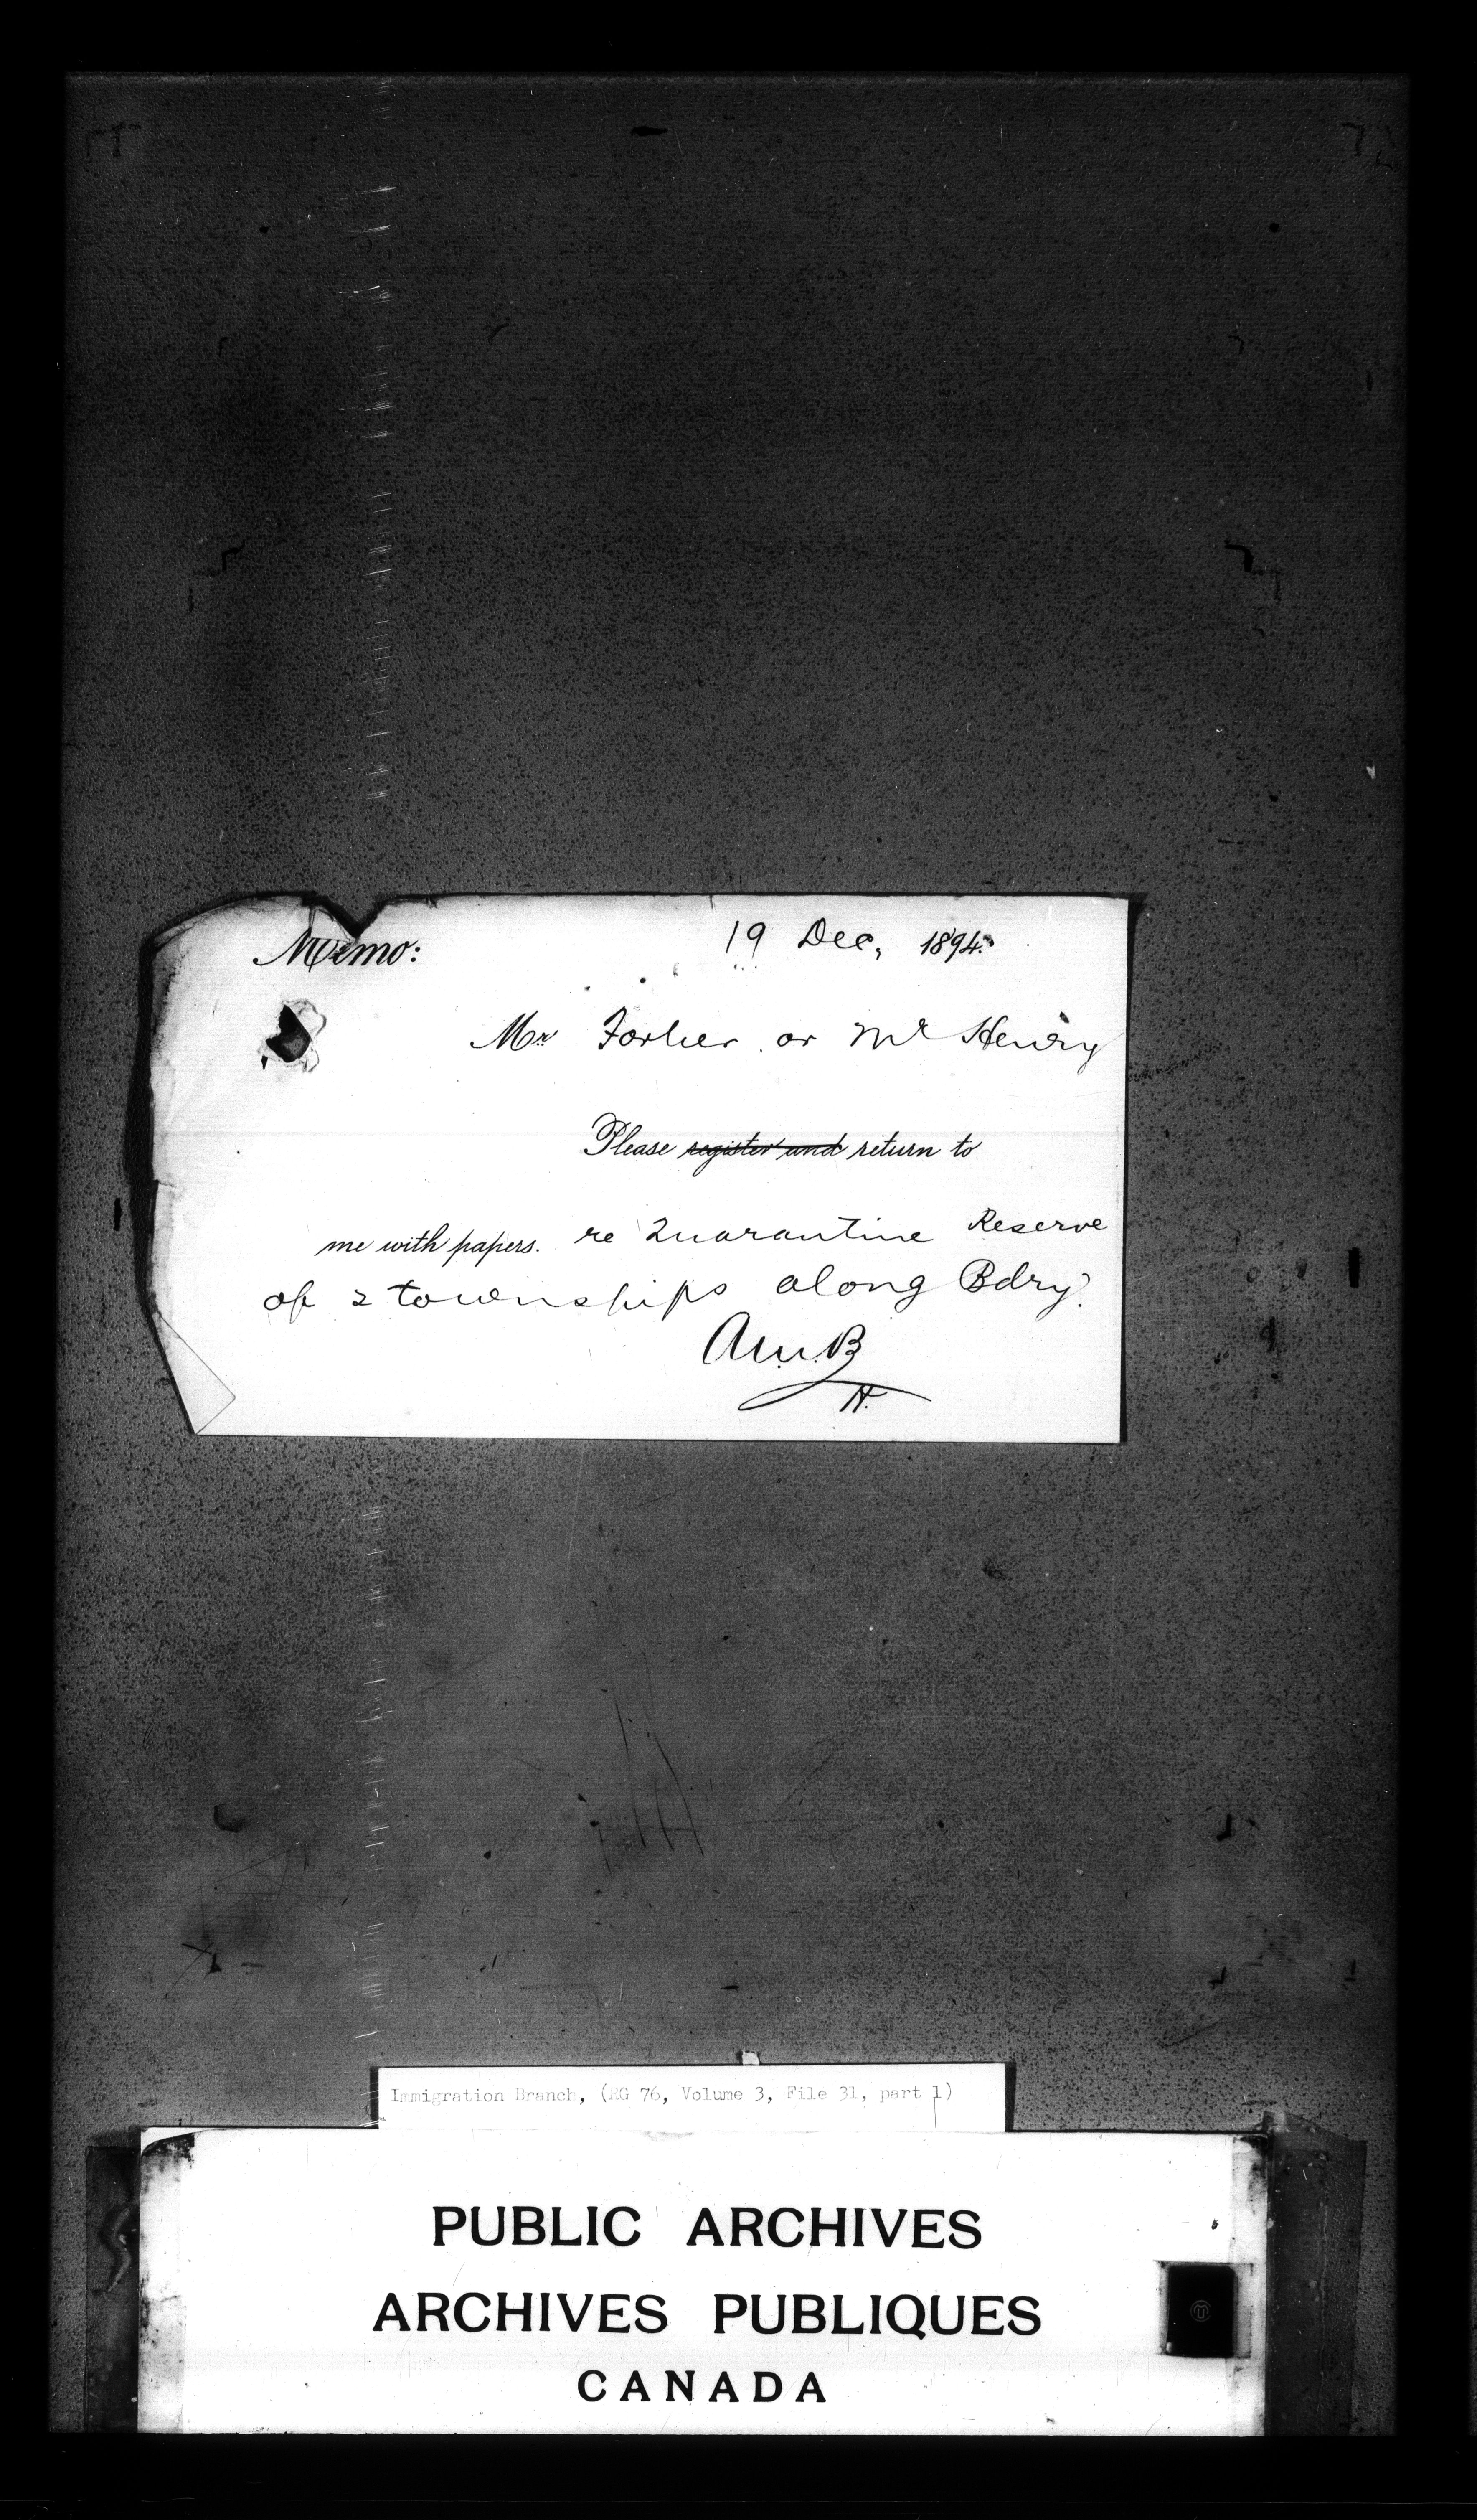 Memo: 19 Dec, 1894.
Mr Forher or Mr Henry
Please register and return to
me with papers. re Quarantine Reserve
of 2 townships along Bdry.
AMB
H.
Immigration Branch, (RG 76, Volume 3, File 31, part 1)
PUBLIC ARCHIVES
ARCHIVES PUBLIQUES
CANADA